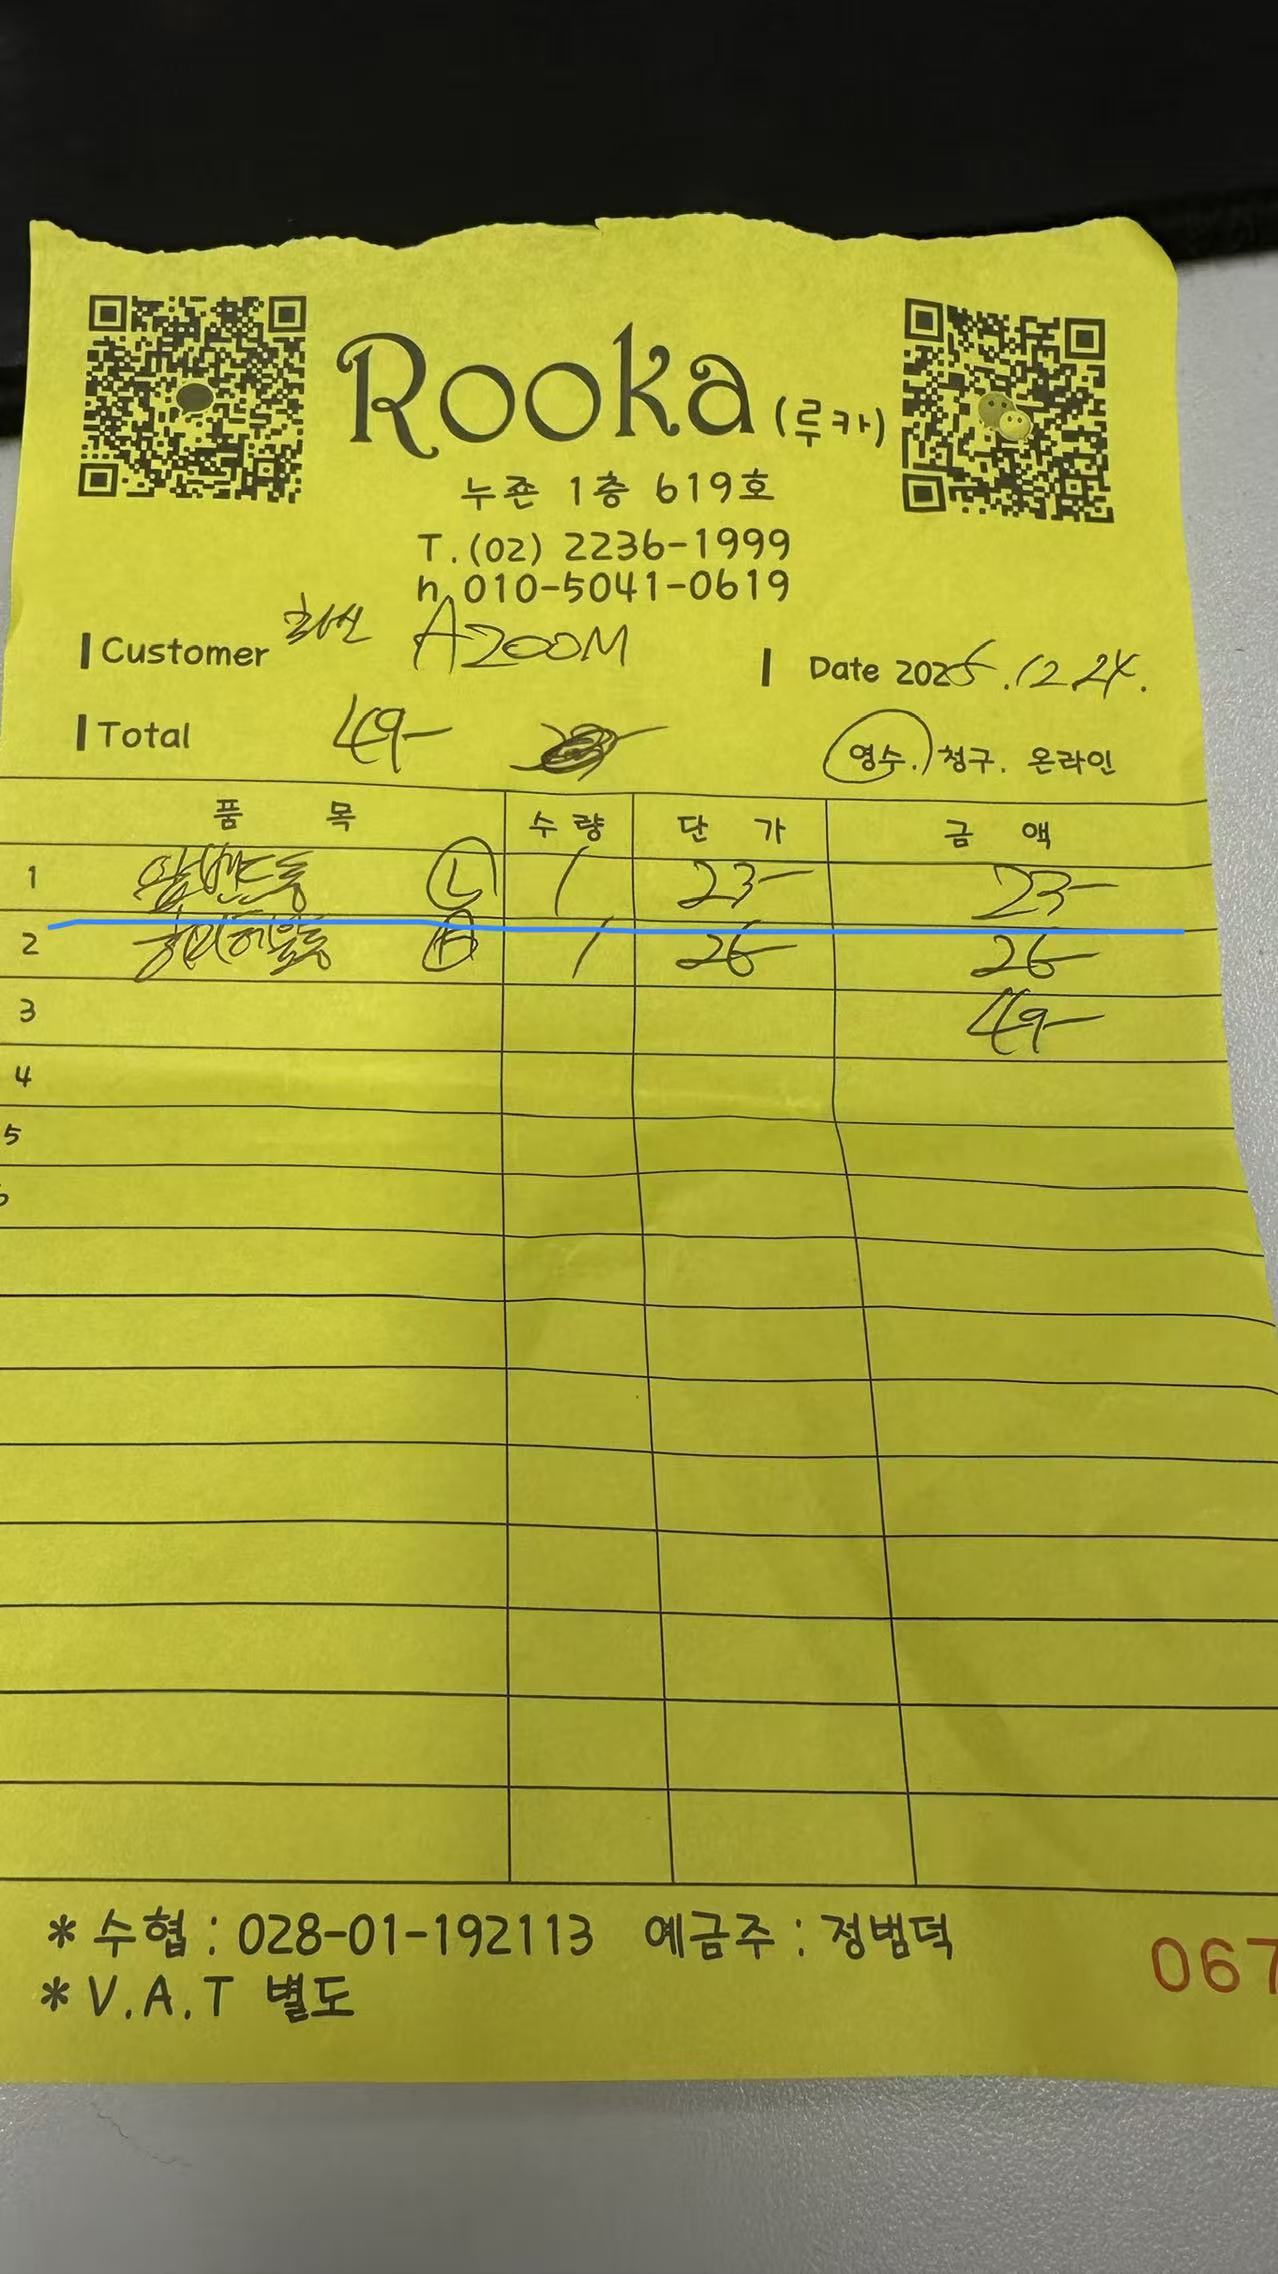 Rooka (루카)
누죤 1층 619호
T.(02) 2236-1999
h.010-5041-0619
Customer 화신 AZOOM
Date 2025.12.24.
Total 49-
영수. 청구. 온라인
품 목 수량 단가 금액
1 L 1 23- 23-
2 B 1 26- 26-
3 49-
4
5
6
* 수협 : 028-01-192113 예금주 : 정범덕
* V.A.T 별도
067